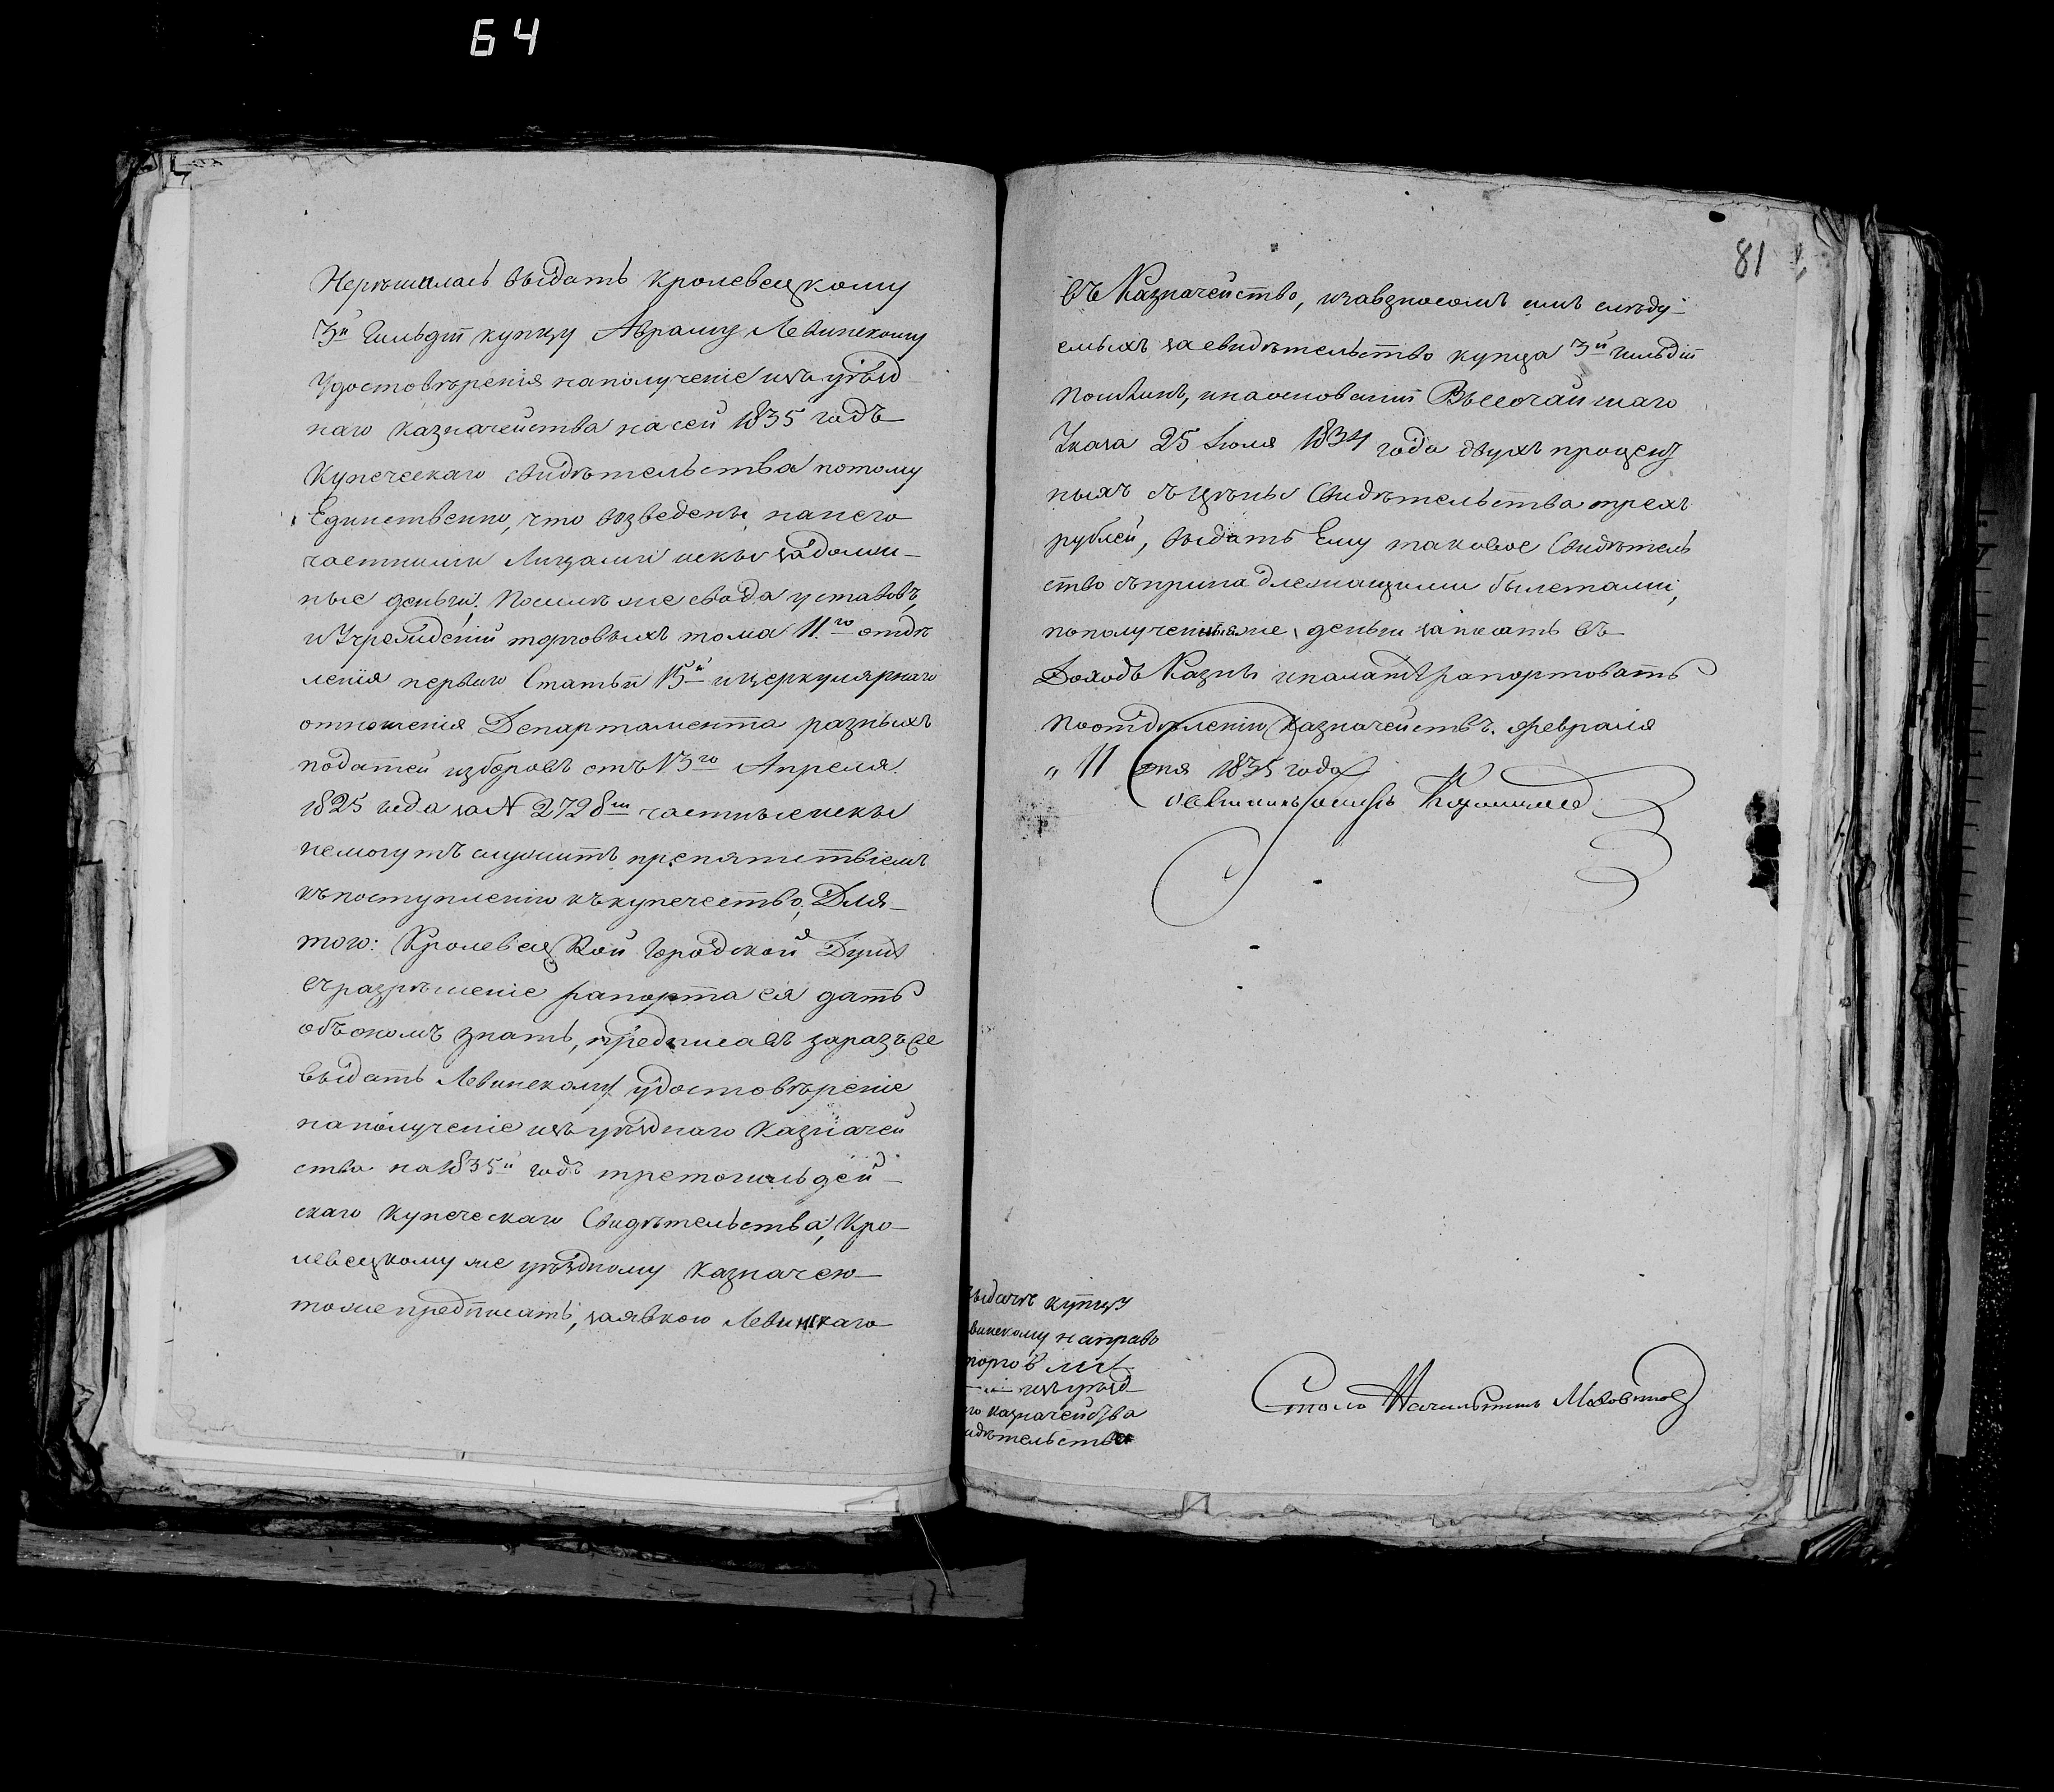 64
Нерѣшилась выдать Кролевецкому
3й Гильдіи купцу Абраму Левинскому
Удостовѣренія на полученіе изъ уѣзд-
наго Казначейства на сей 1835 годъ
Купеческаго свидѣтельства потому
Единственно, что возведены на него
частными Лицами иски за долж-
ные деньги. Посилѣ же свода уставовъ,
и Учрежденій торговыхъ тома 11.го отдѣ
ленія перваго Статьи 15й и церкулярнаго
отношенія Департамента разныхъ
податей и зборовъ отъ 13го Апреля
1825 года за № 2728м частные иски
немогутъ служить препятствіемъ
къ поступленію къ купечество; Для-
того: Кролевецкой Городской Думѣ
въ разрѣшеніе рапорта ея дать
объ ономъ знать, предписавъ заразъ Ее
выдать Левинскому удостовѣреніе
на полученіе изъ уѣзднаго Казначей
ства на 1835й годъ третогильдей-
скаго Купеческаго Свидѣтельства, Кро-
левецкому же уѣздному Казначею-
тоже предписать, за явкою Левинскаго
81
въ Казначейство, и за взносомъ имъ слѣду-
емыхъ за свидѣтельство купца 3й гильдіи
Пошлинъ, и на основаніи Высочайшаго
Указа 25 Июля 1834 года двухъ процент
ныхъ съ цѣны Свидѣтельства трехъ
рублей, выдать Ему таковое Свидѣтель
ство съ принадлежащими билетами,
по полученіи же деньги записать въ
Доходъ Казны и палатѣ рапортовать
По отдѣленію Казначействъ. Февраля
„ 11 дня 1835 года
выдачѣ купцу
винскому на право
торговли
изъ уѣзд
го казначейства
идѣтельства
Столо Начальникъ